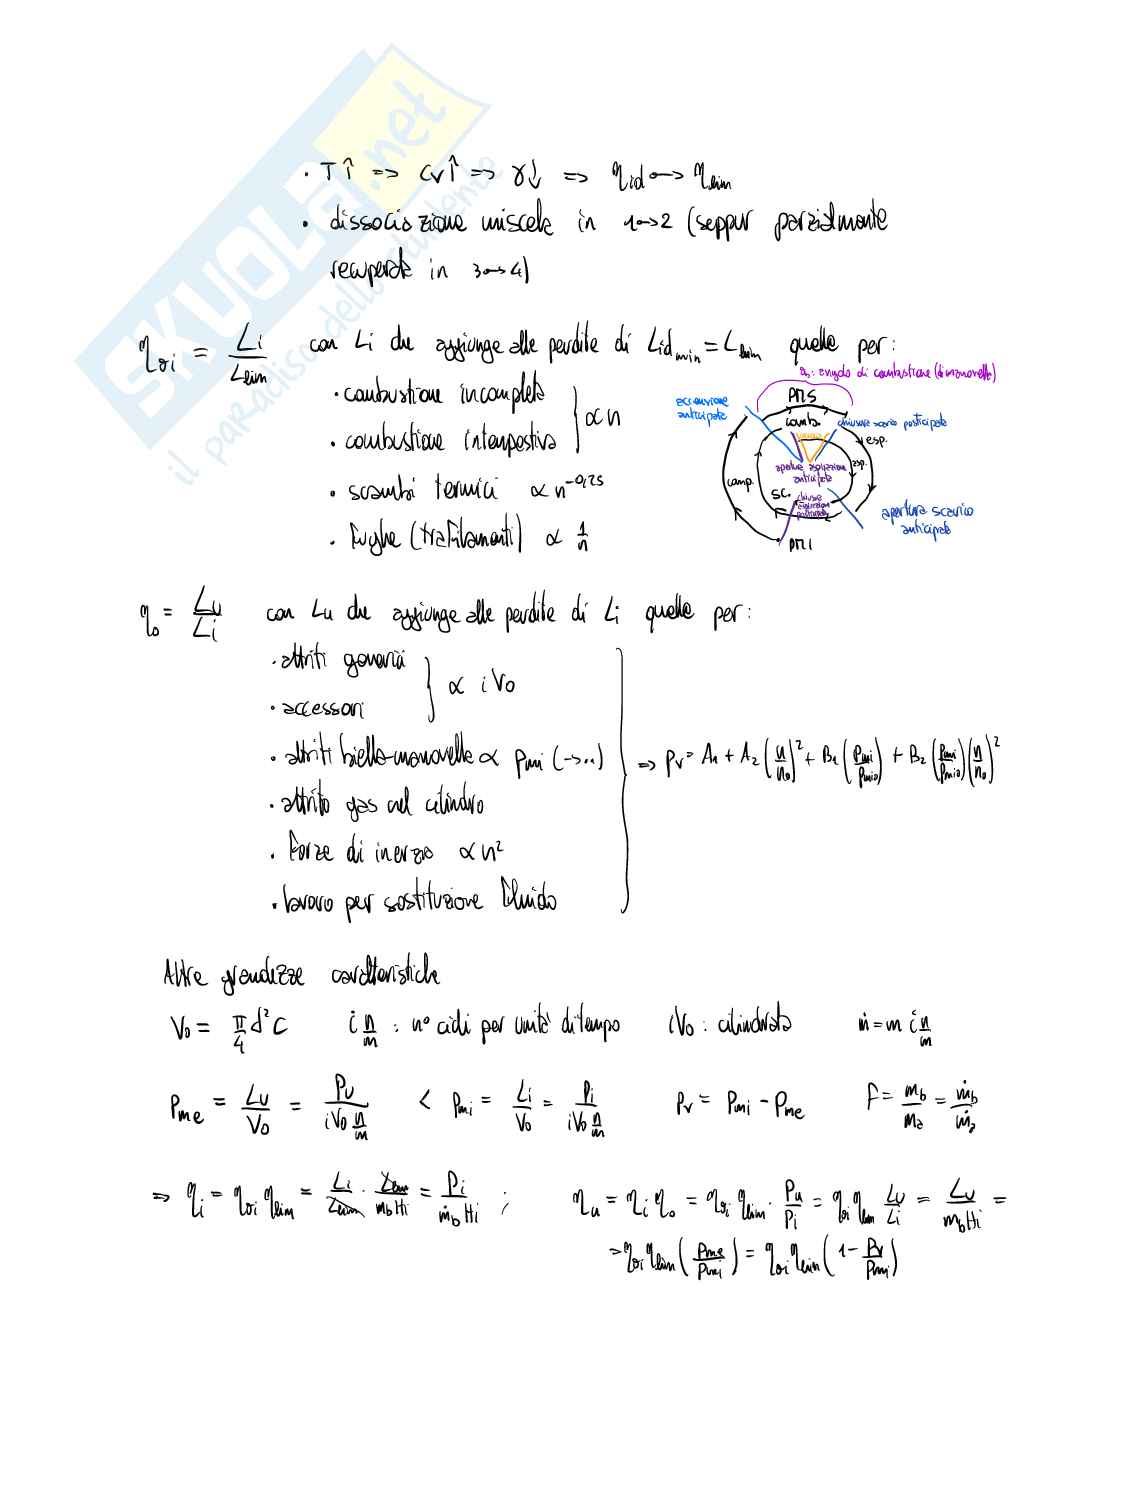 SKUOLA.net
il paradiso dello studente
• T↑ => cv↑ => γ↓ => η_id → η_lim
• dissociazione miscela in 1→2 (seppur parzialmente
recuperata in 3→4)
η_θi = Li / L_lim con Li che aggiunge alle perdite di Lid_min = L_lim quelle per:
• combustione incompleta
• combustione intempestiva } ∝ n
• scambi termici ∝ n^-0,25
• fughe (trafilamenti) ∝ 1/n
θ_b: angolo di combustione (di manovella)
accensione anticipata
PMS
comb.
chiusura scarico posticipata
esp.
asp.
apertura aspirazione anticipata
comp.
sc.
chiusura aspirazione posticipata
apertura scarico anticipata
PMI
η_o = Lu / Li con Lu che aggiunge alle perdite di Li quelle per:
• attriti generici
• accessori } ∝ iV0
• attriti biella-manovella ∝ pmi (→..)
• attrito gas nel cilindro
• forze di inerzia ∝ n²
• lavoro per sostituzione fluido
=> pr = A1 + A2 (n/n0)² + B1 (pmi/pmi0) + B2 (pmi/pmi0)(n/n0)²
Altre grandezze caratteristiche
V0 = π/4 d² c i n/m : n° cicli per unità di tempo iV0 : cilindrata ṁ = m i n/m
pme = Lu/V0 = Pu / (iV0 n/m) < pmi = Li/V0 = Pi / (iV0 n/m) pr = pmi - pme f = mb/ma = ṁb/ṁa
=> ηi = η_θi η_lim = Li/L_lim · L_lim/(mb Hi) = Pi/(ṁb Hi) ; ηu = ηi ηo = η_θi η_lim · Pu/Pi = η_θi η_lim Lu/Li = Lu/(mb Hi) =
= η_θi η_lim (pme/pmi) = η_θi η_lim (1 - pr/pmi)